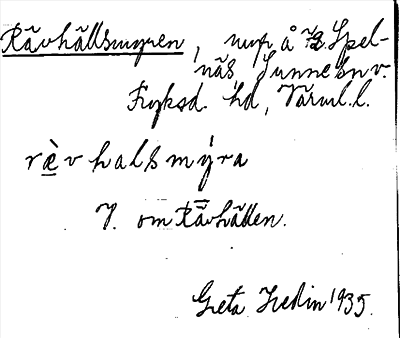 Rävhällsmyren, myr å ½ Spel-
näs Sunne sn v.
Fryksd. hd, Värml. l.
rævhalsmýra
7. om Rävhällen.
Greta Hedin 1935.